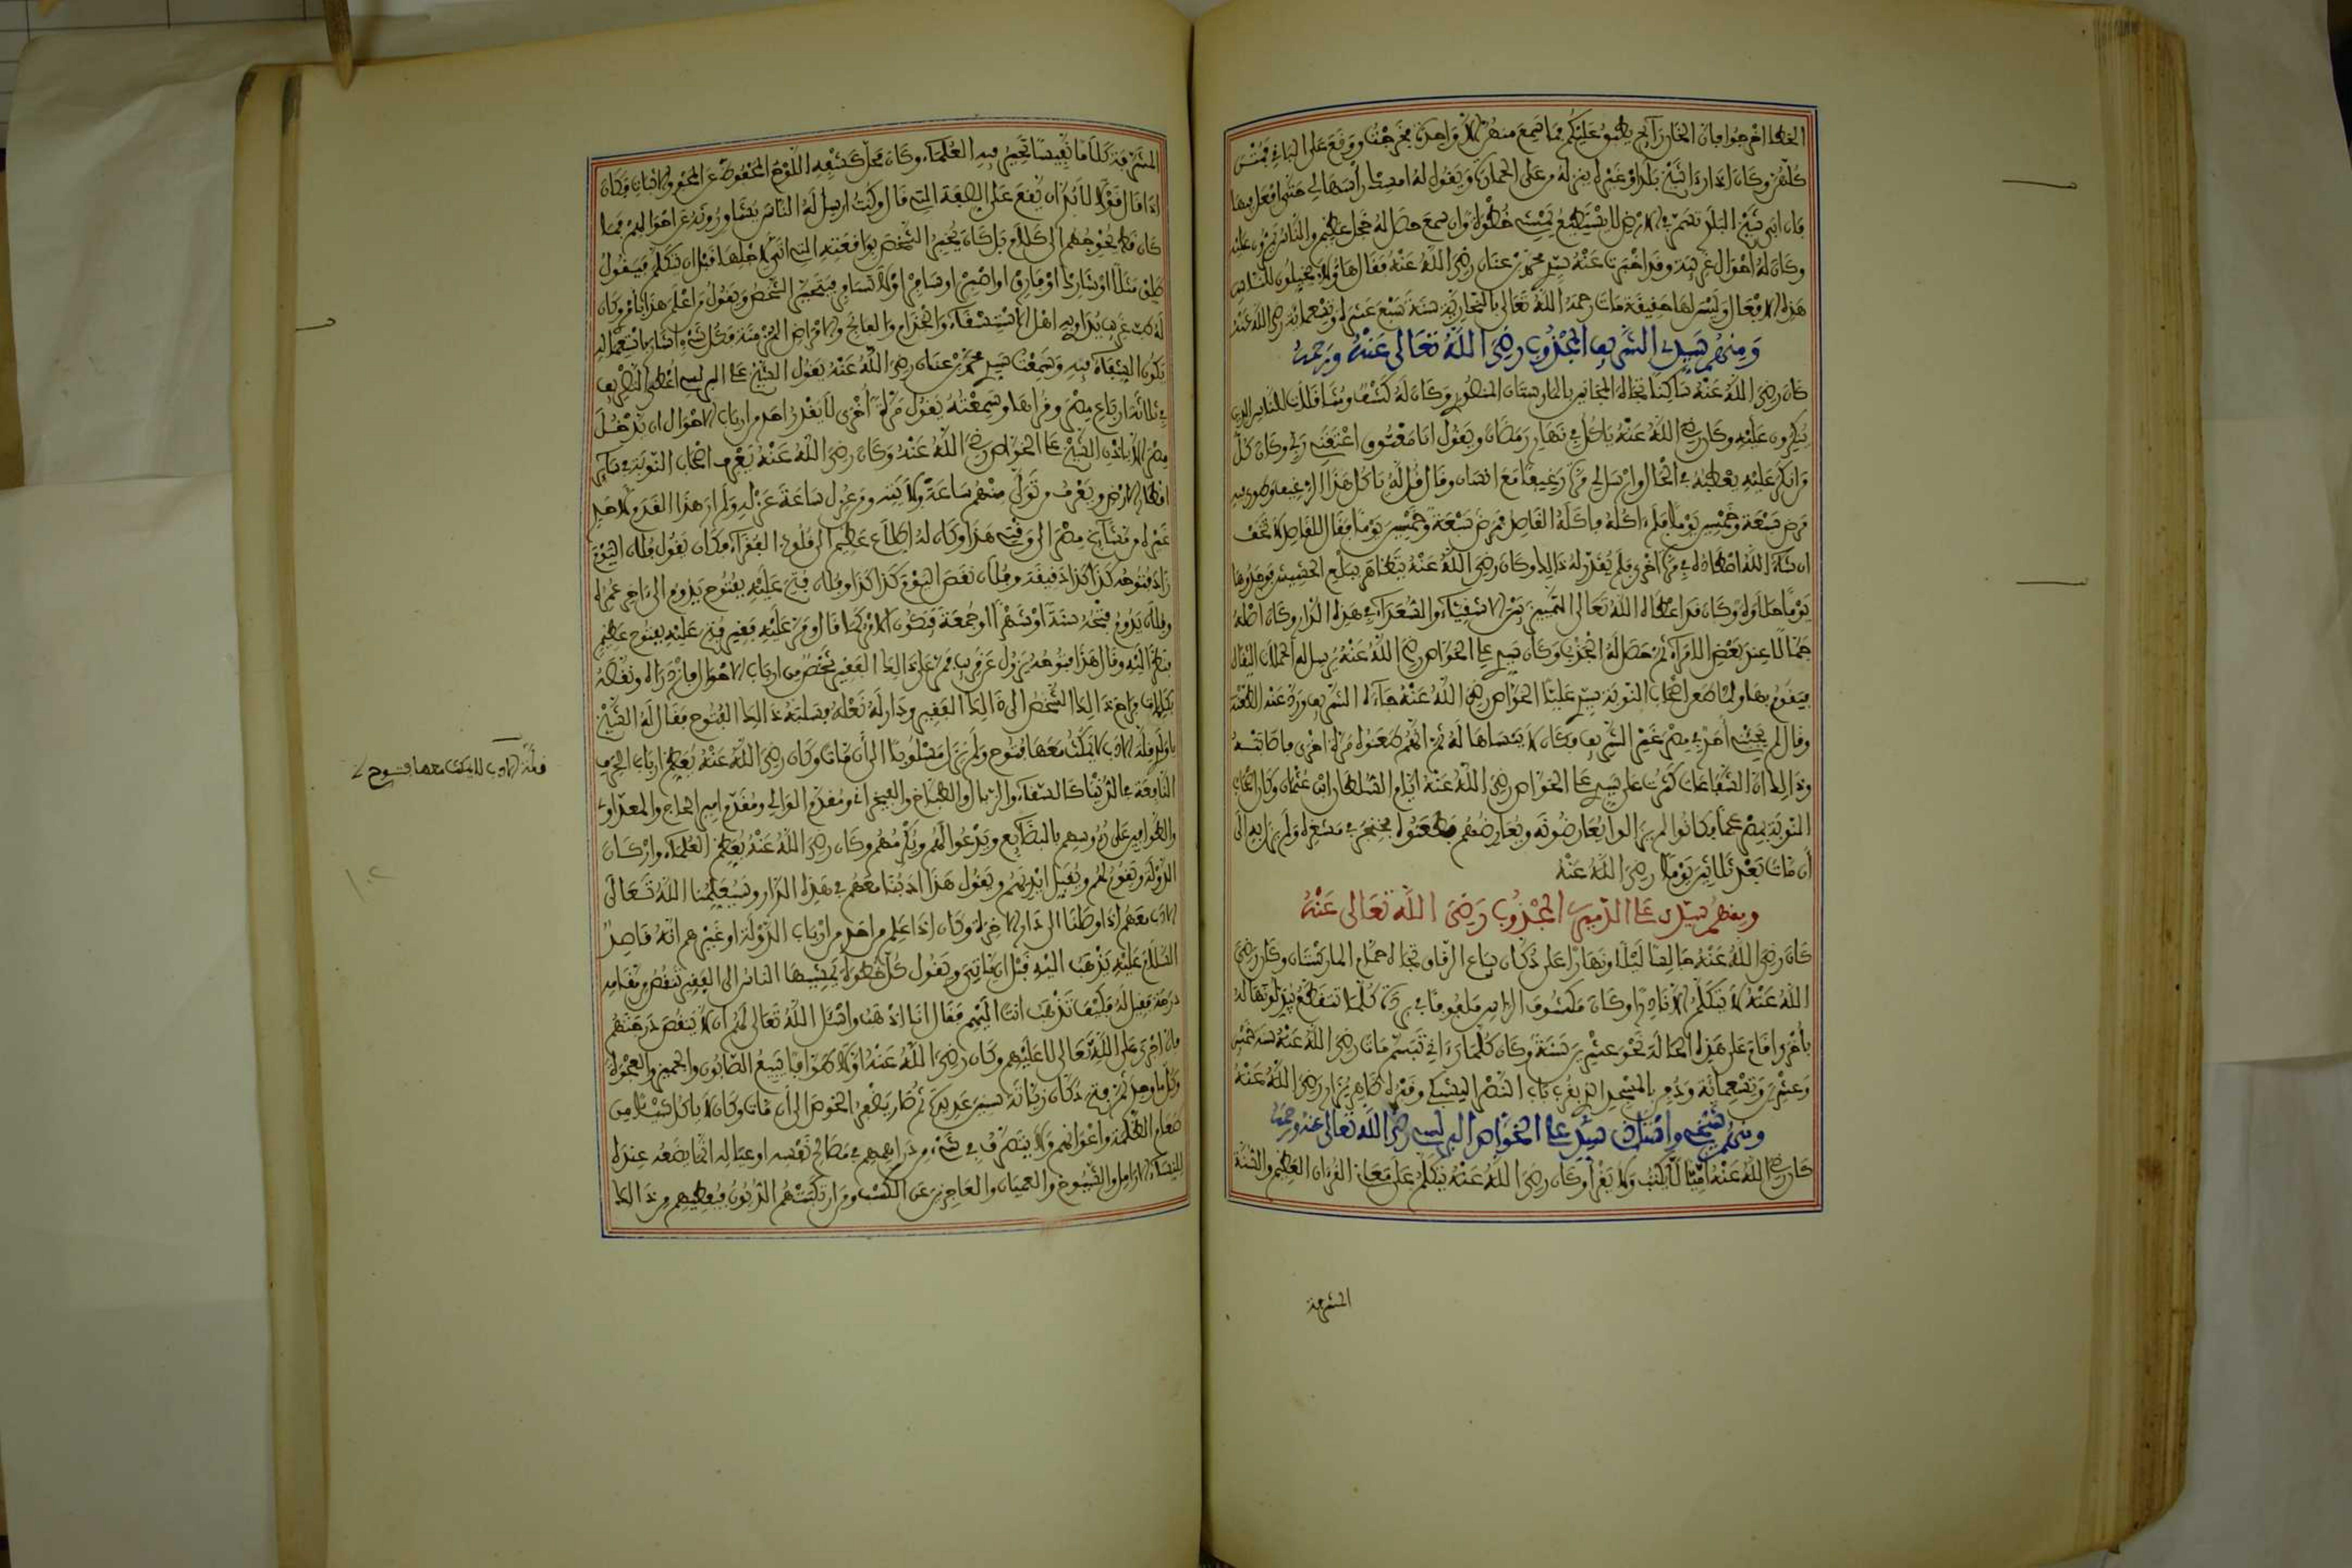 الخطا اخرجوا فان الخان رايح يطبق عليكم فما سمع منهن الا واحدة فخرجت ووقع على الباقي فمتن
كلهن وكان اذا راى شيخ بلد او غيره ينزله من على الحمارة ويقول له امسك راسها لي حتى افعل فيها
فان ابى شيخ البلد تسمر في الارض لا يستطيع يمشي خطوة وان سمع حصل له خجل عظيم والناس يمرون عليه
وكان له احوال غريبة وقد اخبرت عنه سيدي محمد بن عنان رضي الله عنه فقال هاؤلاء يخيلون للناس
هذه الافعال وليس لها حقيقة مات رحمه الله تعالى بالنحارية سنة سبع عشرة وتسعمائة رضي الله عنه
ومنهم سيدي الشريف المجذوب رضي الله تعالى عنه ورحمه
كان رضي الله عنه ساكنا تجاه المجانين بالمارستان المنصوري وكان له كشف ومثاقلات للناس الذين
ينكرون عليه وكان رضي الله عنه ياكل في نهار رمضان ويقول انا معتوق اعتقني ربي وكان كل
من انكر عليه يعطبه في الحال وارسل لي مرة رغيفا مع انسان وقال قل له ياكل هذا الرغيف وطوى فيه
مرض سبعة وخمسين يوما فلم اكله فاكله القاصد فمرض سبعة وخمسين يوما فقال للقاصد لا تخف
ان شاء الله اصطاده في مرة اخرى فلم يقدر له ذالك وكان رضي الله عنه يتظاهر ببلع الحشيش فوجدوها
يوما حلاوة وكان قد اعطاه الله تعالى التمييز بين الاشقياء والسعداء في هذه الدار وكان اصله
جمالا عند بعض الامراء ثم حصل له الجذب وكان سيدي علي الخواص رضي الله عنه يرسل له الحملات الثقال
فيقوم بها ولما طعن اصحاب النوبة سيدي عليا الخواص رضي الله عنه جاءه الشريف ورد عنه الطعنة
وقال لم يجئني احد في مصر غير الشريف فكان لا ينساها له ثم انهم طعنوه مرة اخرى فاصابته
وذالك ان الشفاعات كثرت على سيدي علي الخواص رضي الله عنه ايام السلطان ابن عثمان وكان اصحاب
النوبة بمصر عجما فكانوا لم يزالوا يعارضونه ويعارضهم فطعنوه بخنجر في مشعره ولم يزل به الى
ان مات بعد ثلاثين يوما رضي الله عنه
ومنهم سيدي علي الدميري المجذوب رضي الله تعالى عنه
كان رضي الله عنه جالسا ليلا ونهارا على دكان بياع الرقاق تجاه حمام المارستان وكان رضي
الله عنه لا يتكلم الا نادرا وكان مكشوف الراس ملفوفا في بردة كلما تتقطع يبدلونها له
باخرى واقام على هذه الحالة نحو عشرين سنة وكان كلما راني تبسم مات رضي الله عنه سنة خمس
وعشرين وتسعمائة ودفن بالمسجد الذي بقرب باب النصر اليشبكي وقبره ظاهر يزار رضي الله عنه
ومنهم شيخي واستاذي سيدي علي الخواص البرلسي رضي الله تعالى عنه ورحمه
كان رضي الله عنه اميا لا يكتب ولا يقرا وكان رضي الله عنه يتكلم على معاني القرءان العظيم والسنة
المشرفة
المشرفة كلاما نفيسا تحير فيه العلماء وكان محل كشفه اللوح المحفوظ عن المحو والاثبات فكان
اذا قال قولا لا بد ان يقع على الصفة التي قال وكنت ارسل له الناس يشاورونه عن احوالهم فما
كان قط يحوجهم الى كلام بل كان يخبر الشخص بواقعته التي اتى لاجلها قبل ان يتكلم فيقول
طلق مثلا او شارك او فارق او اصبر او سافر او لا تسافر فيتحير الشخص ويقول من اعلم هذا بامري وكان
له طب غريب يداوي به اهل الاستسقاء والجذام والفالج والامراض المزمنة فكل شيء اشار باستعماله
يكون الشفاء فيه وسمعت سيدي محمد بن عنان رضي الله عنه يقول الشيخ علي البرلسي اعطي التصريف
في ثلاثة ارباع مصر وقراها وسمعته يقول مرة اخرى لا يقدر احد من ارباب الاحوال ان يدخل
مصر الا باذن الشيخ علي الخواص رضي الله عنه وكان رضي الله عنه يعرف اصحاب النوبة في سائر
اقطار الارض ويعرف من تولى منهم ساعة ولايته ومن عزل ساعة عزله ولم ار هذا القدم لاحد
غيره من مشايخ مصر الى وقتي هذا وكان له اطلاع عظيم الى قلوب الفقراء فكان يقول فلان اليوم
زاد فتوحه كذا كذا دقيقة وفلان نقص اليوم كذا كذا وفلان فتح عليه بفتوح يدوم الى اخر عمره
وفلان يدوم فتحه سنة او شهرا او جمعة فيكون الامر كما قال ومر عليه فقير فتح عليه بفتوح عظيم
فنظر اليه وقال هذا فتوحه يزول عن قريب فمر على ذالك الفقير شخص من ارباب الاحوال فازدراه ونقصه
بكلمات فراح ذالك الشخص الى ذالك الفقير ودار له نعله فسلبه ذالك الفتوح فقال له الشيخ
يا ولدي قلة الادب لا يمكث معها فتوح ولم يزل مسلوبا الى ان مات وكان رضي الله عنه يعظم ارباب الحرف
النافعة في الدنيا كالسقاء والزبال والطباخ والفيخراني ومقدم الوالي ومقدم امير الحاج والمعداوي
والطوافين على رءوسهم بالبضائع ويدعوا لهم ويكرمهم وكان رضي الله عنه يعظم العلماء واركان
الدولة ويقوم لهم ويقبل ايديهم ويقول هذا ادبنا معهم في هذه الدار وسيعلمنا الله تعالى
الادب معهم اذا وصلنا الى دار الاخرة وكان اذا علم من احد من ارباب الدولة او غيرهم انه قاصد
السلام عليه يذهب اليه قبل ان ياتي ويقول كل خطوة يمشيها الناس الى الفقير تنقص من مقامه
درجة فقيل له فكيف تذهب انت اليهم فقال انا اذهب واسئل الله تعالى لهم ان لا ينقص درجتهم
فان اجرى على الله تعالى لا عليهم وكان رضي الله عنه اولا طوافا يبيع الصابون والجميز والعجوة
وكل ما وجد ثم فتح دكان زياتة سنين عديدة ثم صار يضفر الخوص الى ان مات وكان لا ياكل شيئا من
طعام الظلمة واعوانهم ولا يتصرف في شيء من دراهمهم في مصالح نفسه او عياله انما يضعه عنده
للنساء الارامل والشيوخ والعميان والعاجزين عن الكسب ومن ارتكبتهم الديون فيعطيهم من ذالك
قلة الادب لا يمكث معها فتوح
١٠٢